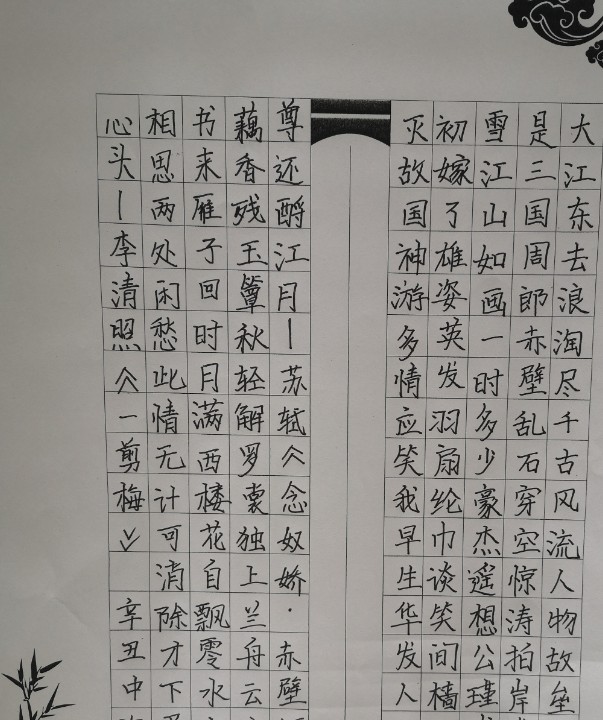 大江东去浪淘尽千古风流人物故垒
是三国周郎赤壁乱石穿空惊涛拍岸
雪江山如画一时多少豪杰遥想公瑾
初嫁了雄姿英发羽扇纶巾谈笑间樯
灭故国神游多情应笑我早生华发人
尊还酹江月—苏轼《念奴娇·赤壁
藕香残玉簟秋轻解罗裳独上兰舟云
书来雁子回时月满西楼花自飘零水
相思两处闲愁此情无计可消除才下
心头—李清照《一剪梅》 辛丑中